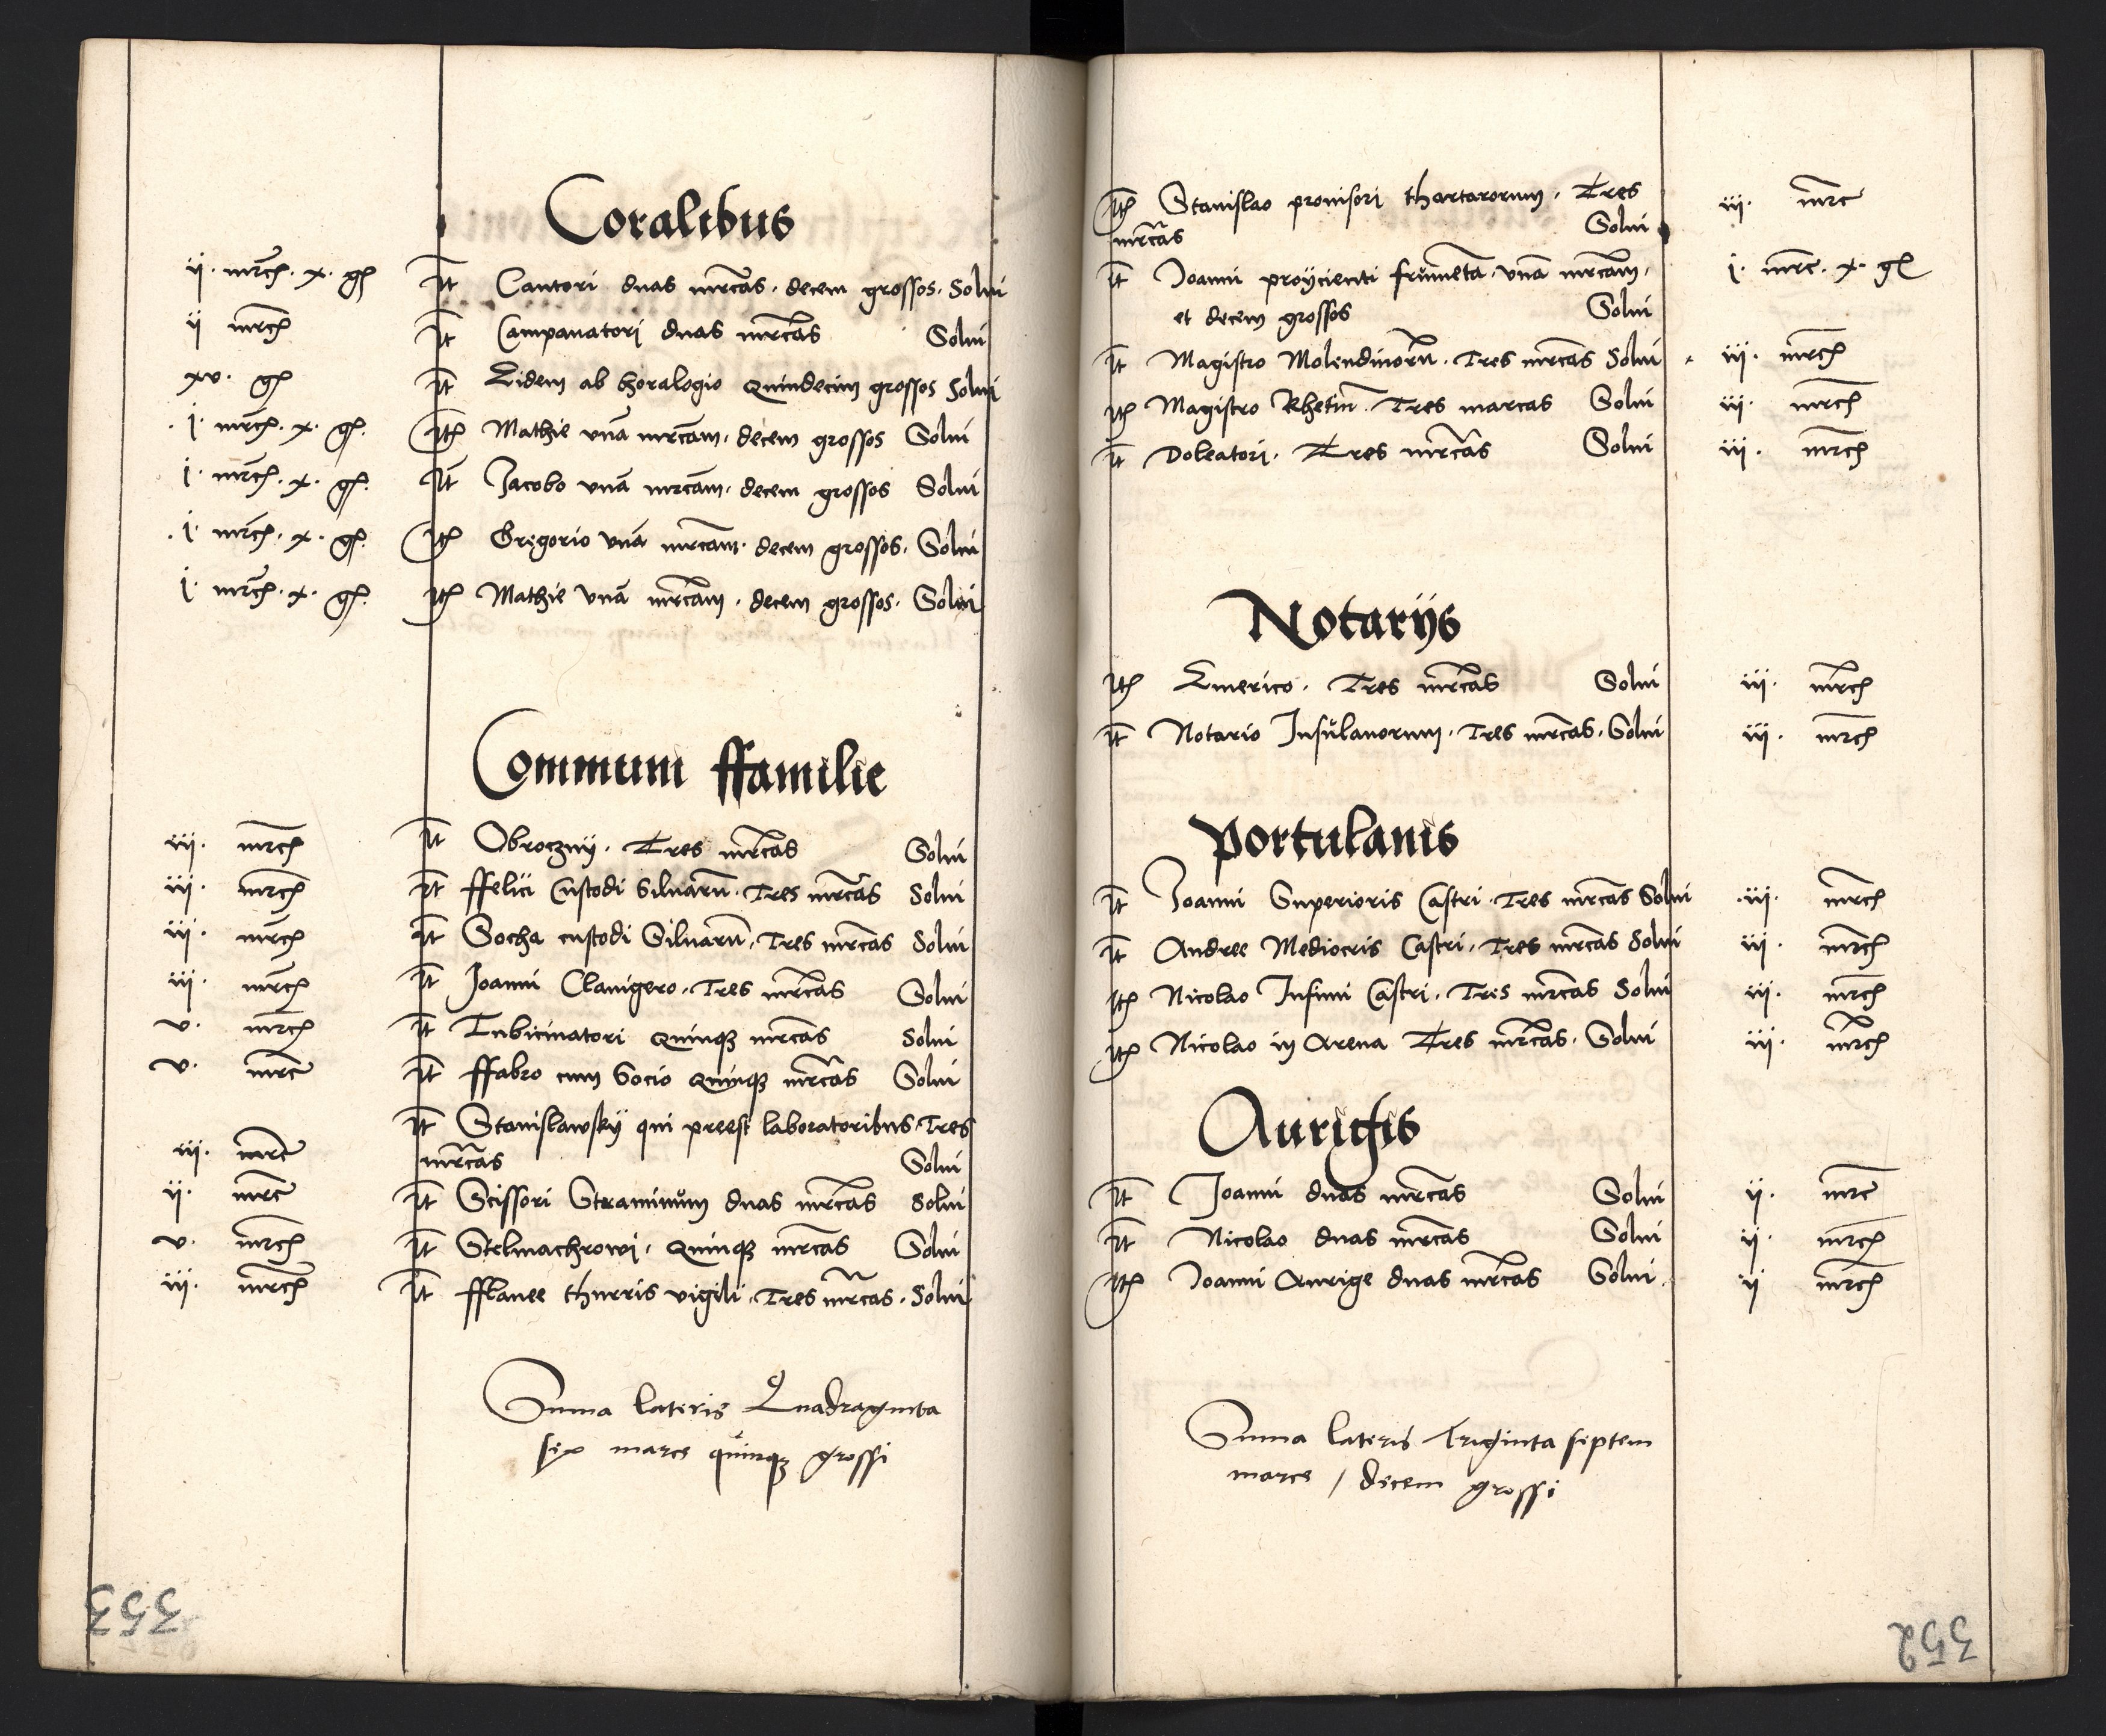 Coralibus
ij. mrcꝭ. x. gꝭ It Cantori duas mrcas. decem grossos. Solui
ij mrcꝭ It Campanatori duas mrcas Solui
xv. gꝭ It Eidem ab horalogio Quindecim grossos Solui
j. mrcꝭ. x. gꝭ. Itꝭ Mathie vnā mrcam. decem grossos Solui
j. mrcꝭ. x. gꝭ. It Jacobo vnā mrcam. decem grossos Solui
j. mrcꝭ. x. gꝭ. Itꝭ Gregorio vnā mrcam. decem grossos. Solui
j. mrcꝭ. x. gꝭ. Itꝭ Mathie vnā mrcam. decem grossos. Solui
Communi ffamilie
iij. mrcꝭ It Obroczny. Tres mrcas Solui
iij. mrcꝭ It ffelici Custodi Siluarū. Tres mrcas Solui
iij. mrcꝭ It Socha custodi Siluarū. Tres mrcas Solui
iij. mrcꝭ It Joanni Clauigero. Tres mrcas Solui
v. mrcꝭ It Tubicinatori Quinqꝫ mrcas Solui
v. mrc It ffabro cum Socio Quinqꝫ mrcas Solui
It Stanislawsky qui preest laboratoribus. Tres
iij. mrc mrcas Solui
ij. mrc It Scissori Straminum duas mrcas Solui
v. mrcꝭ It Stelmachrowi. Quinqꝫ mrcas Solui
iij. mrcꝭ It fflanee thurris vigili. Tres mrcas. Solui
Suma lateris Quadraginta
six marce quinqꝫ grossi
353
Itꝭ Stanislao prouisori thartarorum. Tres iij. mrc
mrcas Solui
It Joanni proycienti frumēta. vnā mrcam. j. mrc. x. gꝭ
et decem grossos Solui
It Magistro Molendinorū. Tres mrcas Solui iij. mrcꝭ
Itꝭ Magistro Rhetiū. Tres marcas Solui iij. mrcꝭ
It Doleatori. Tres mrcas Solui iij. mrcꝭ
Notarijs
Itꝭ Emerico. Tres mrcas Solui iij. mrcꝭ
It Notario Insulanorum. Tres mrcas. Solui iij. mrcꝭ
Portulanis
It Joanni Superioris Castri. Tres mrcas Solui iij. mrcꝭ
It Andree Mediocris Castri. Tres mrcas Solui iij. mrcꝭ
Itꝭ Nicolao Infimi Castri. Tres mrcas Solui iij. mrcꝭ
Itꝭ Nicolao in Arena Tres mrcas. Solui iij. mrcꝭ
Aurigis
It Joanni duas mrcas Solui ij. mrc
It Nicolao duas mrcas Solui ij. mrcꝭ
Itꝭ Joanni Aurige duas mrcas Solui ij mrcꝭ
Suma lateris Triginta septem
marce / decem grossi
352